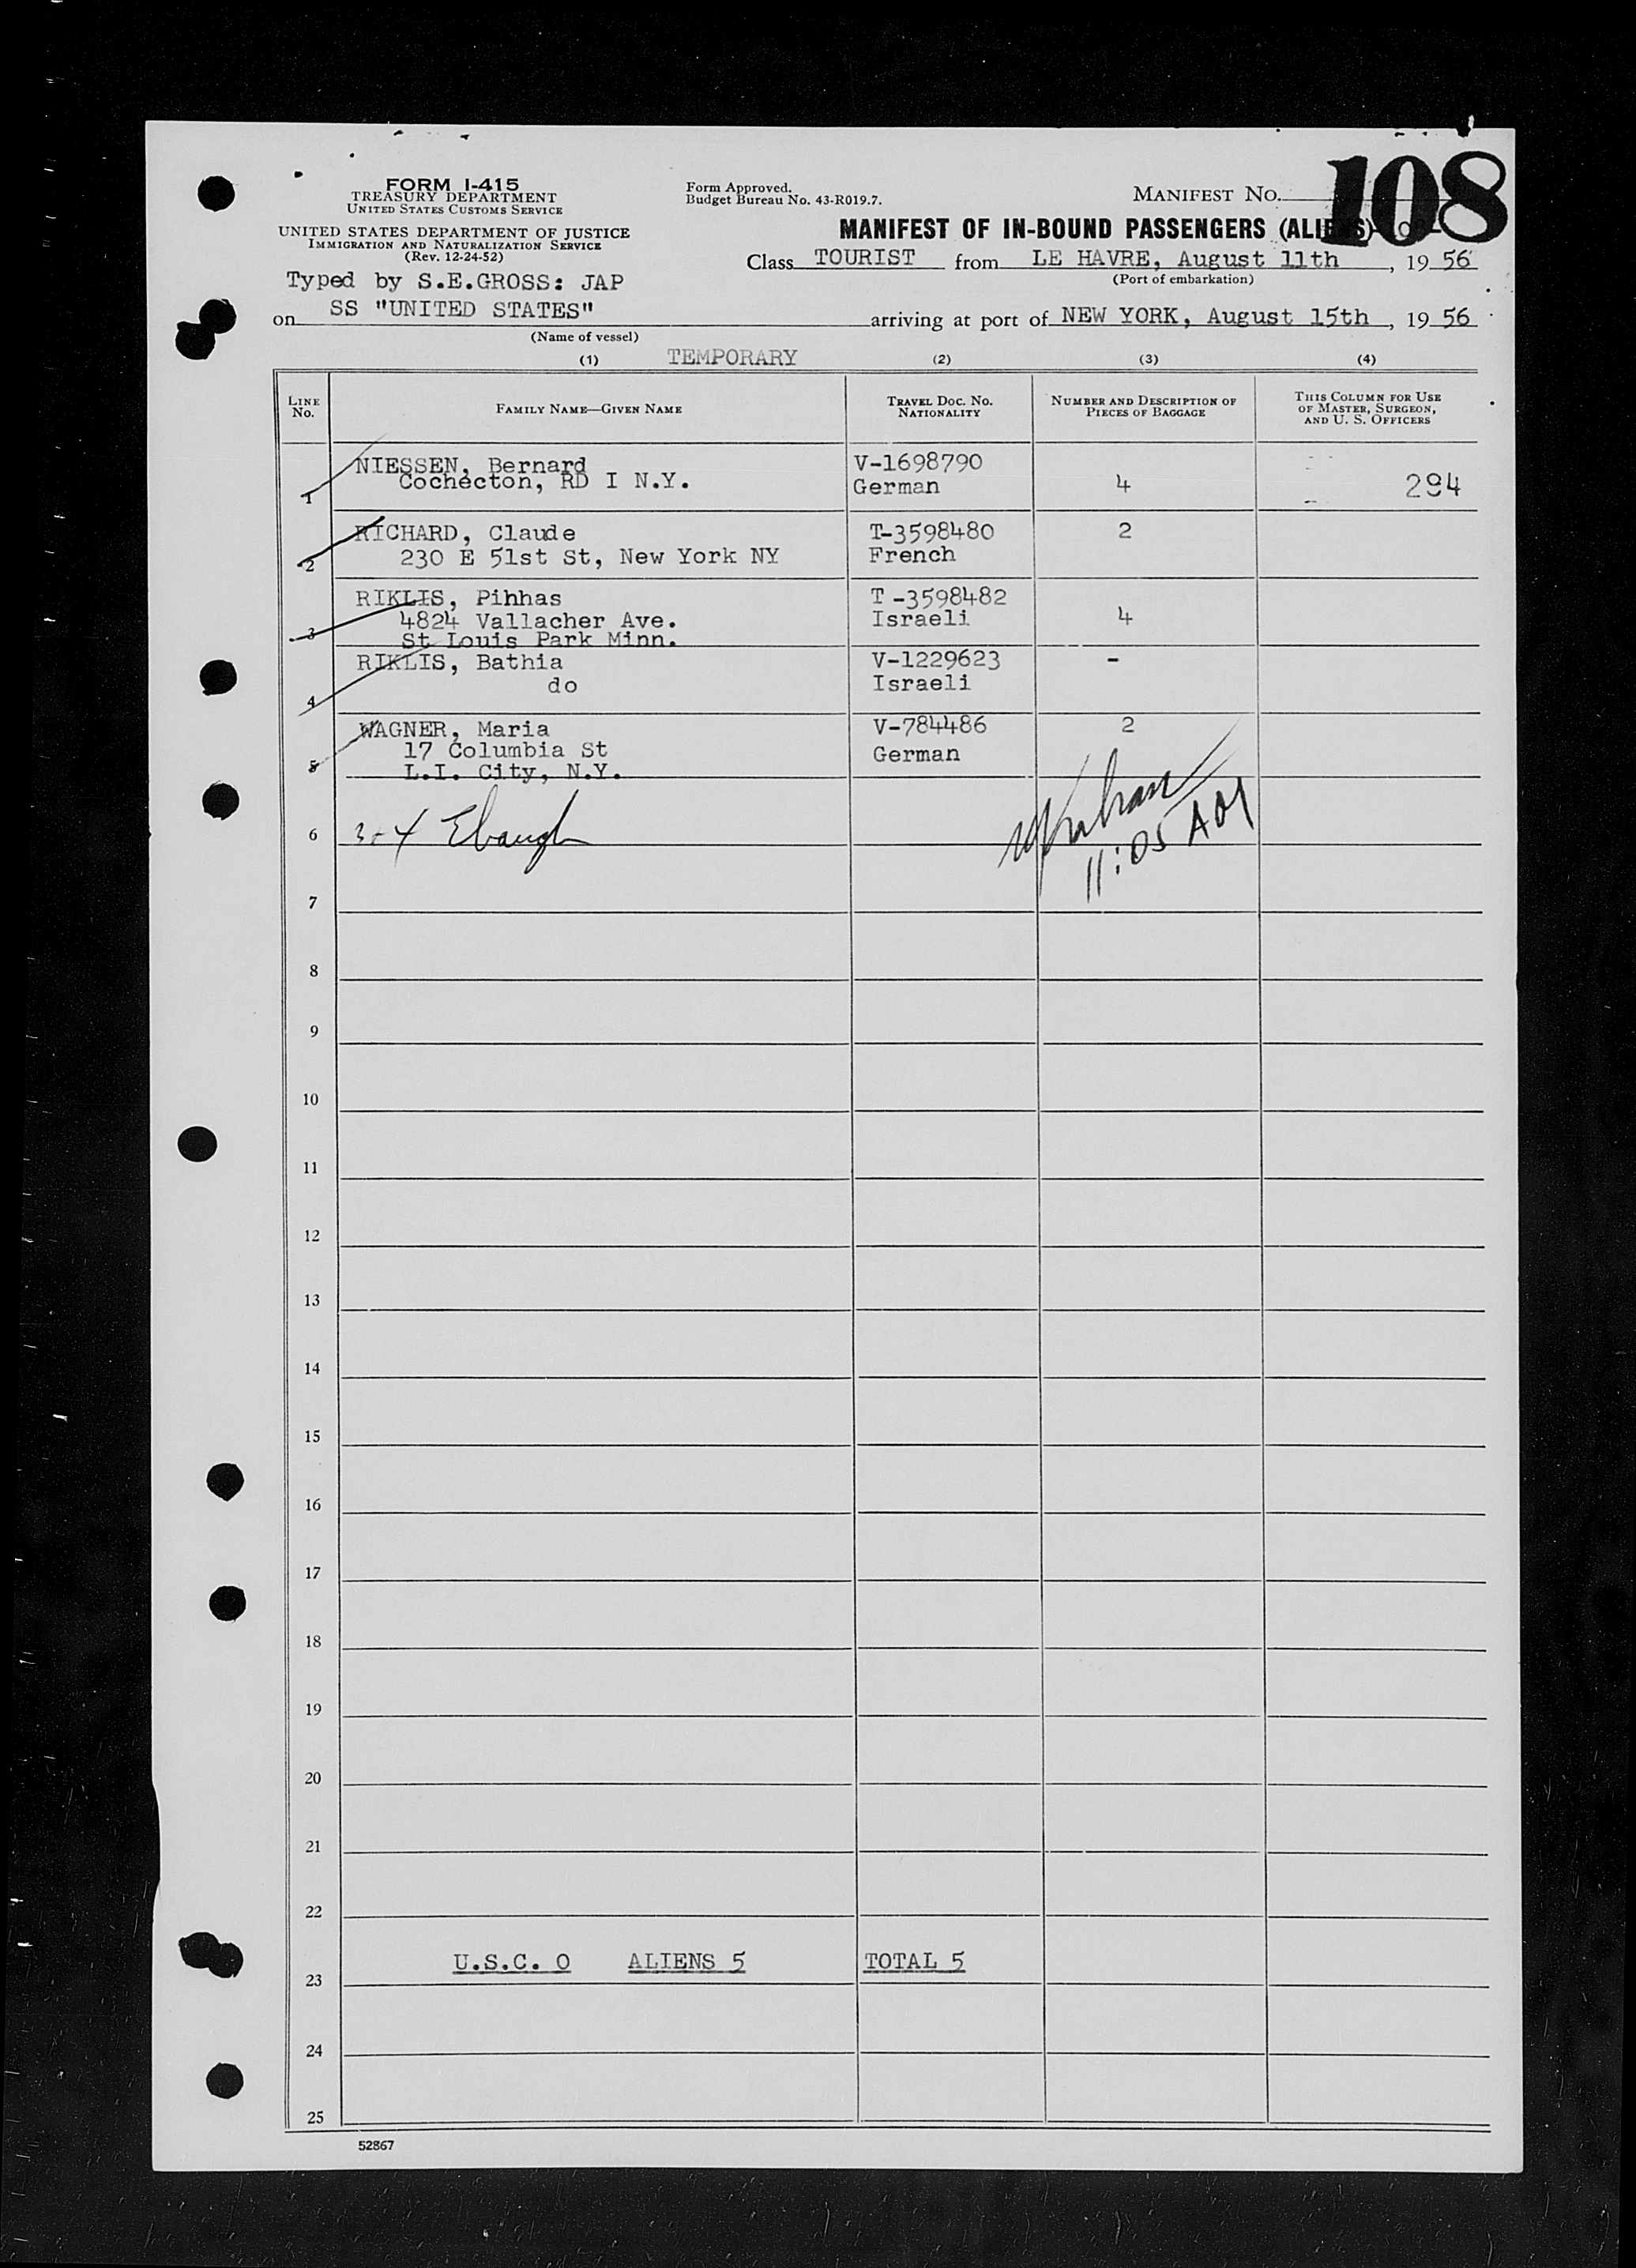 108
FORM I-415
TREASURY DEPARTMENT
UNITED STATES CUSTOMS SERVICE
UNITED STATES DEPARTMENT OF JUSTICE
IMMIGRATION AND NATURALIZATION SERVICE
(Rev. 12-24-52)
Form Approved.
Budget Bureau No. 43-R019.7.
MANIFEST NO.
MANIFEST OF IN-BOUND PASSENGERS (ALIENS)
Class TOURIST from LE HAVRE, August 11th, 19 56
(Port of embarkation)
Typed by S.E.GROSS: JAP
on SS "UNITED STATES" arriving at port of NEW YORK, August 15th, 19 56
(Name of vessel)
(1) TEMPORARY (2) (3) (4)
LINE No. FAMILY NAME—GIVEN NAME TRAVEL DOC. NO. NATIONALITY NUMBER AND DESCRIPTION OF PIECES OF BAGGAGE THIS COLUMN FOR USE OF MASTER, SURGEON, AND U. S. OFFICERS
NIESSEN, Bernard V-1698790
1 Cochecton, RD I N.Y. German 4 294
RICHARD, Claude T-3598480 2
2 230 E 51st St, New York NY French
RIKLIS, Pihhas T -3598482
3 4824 Vallacher Ave. Israeli 4
St Louis Park Minn.
RIKLIS, Bathia V-1229623 -
4 do Israeli
WAGNER, Maria V-784486 2
17 Columbia St German
5 L.I. City, N.Y.
6 3+4 Ebaugh
11:05
7
8
9
10
11
12
13
14
15
16
17
18
19
20
21
22
U.S.C. 0 ALIENS 5 TOTAL 5
23
24
25
52867